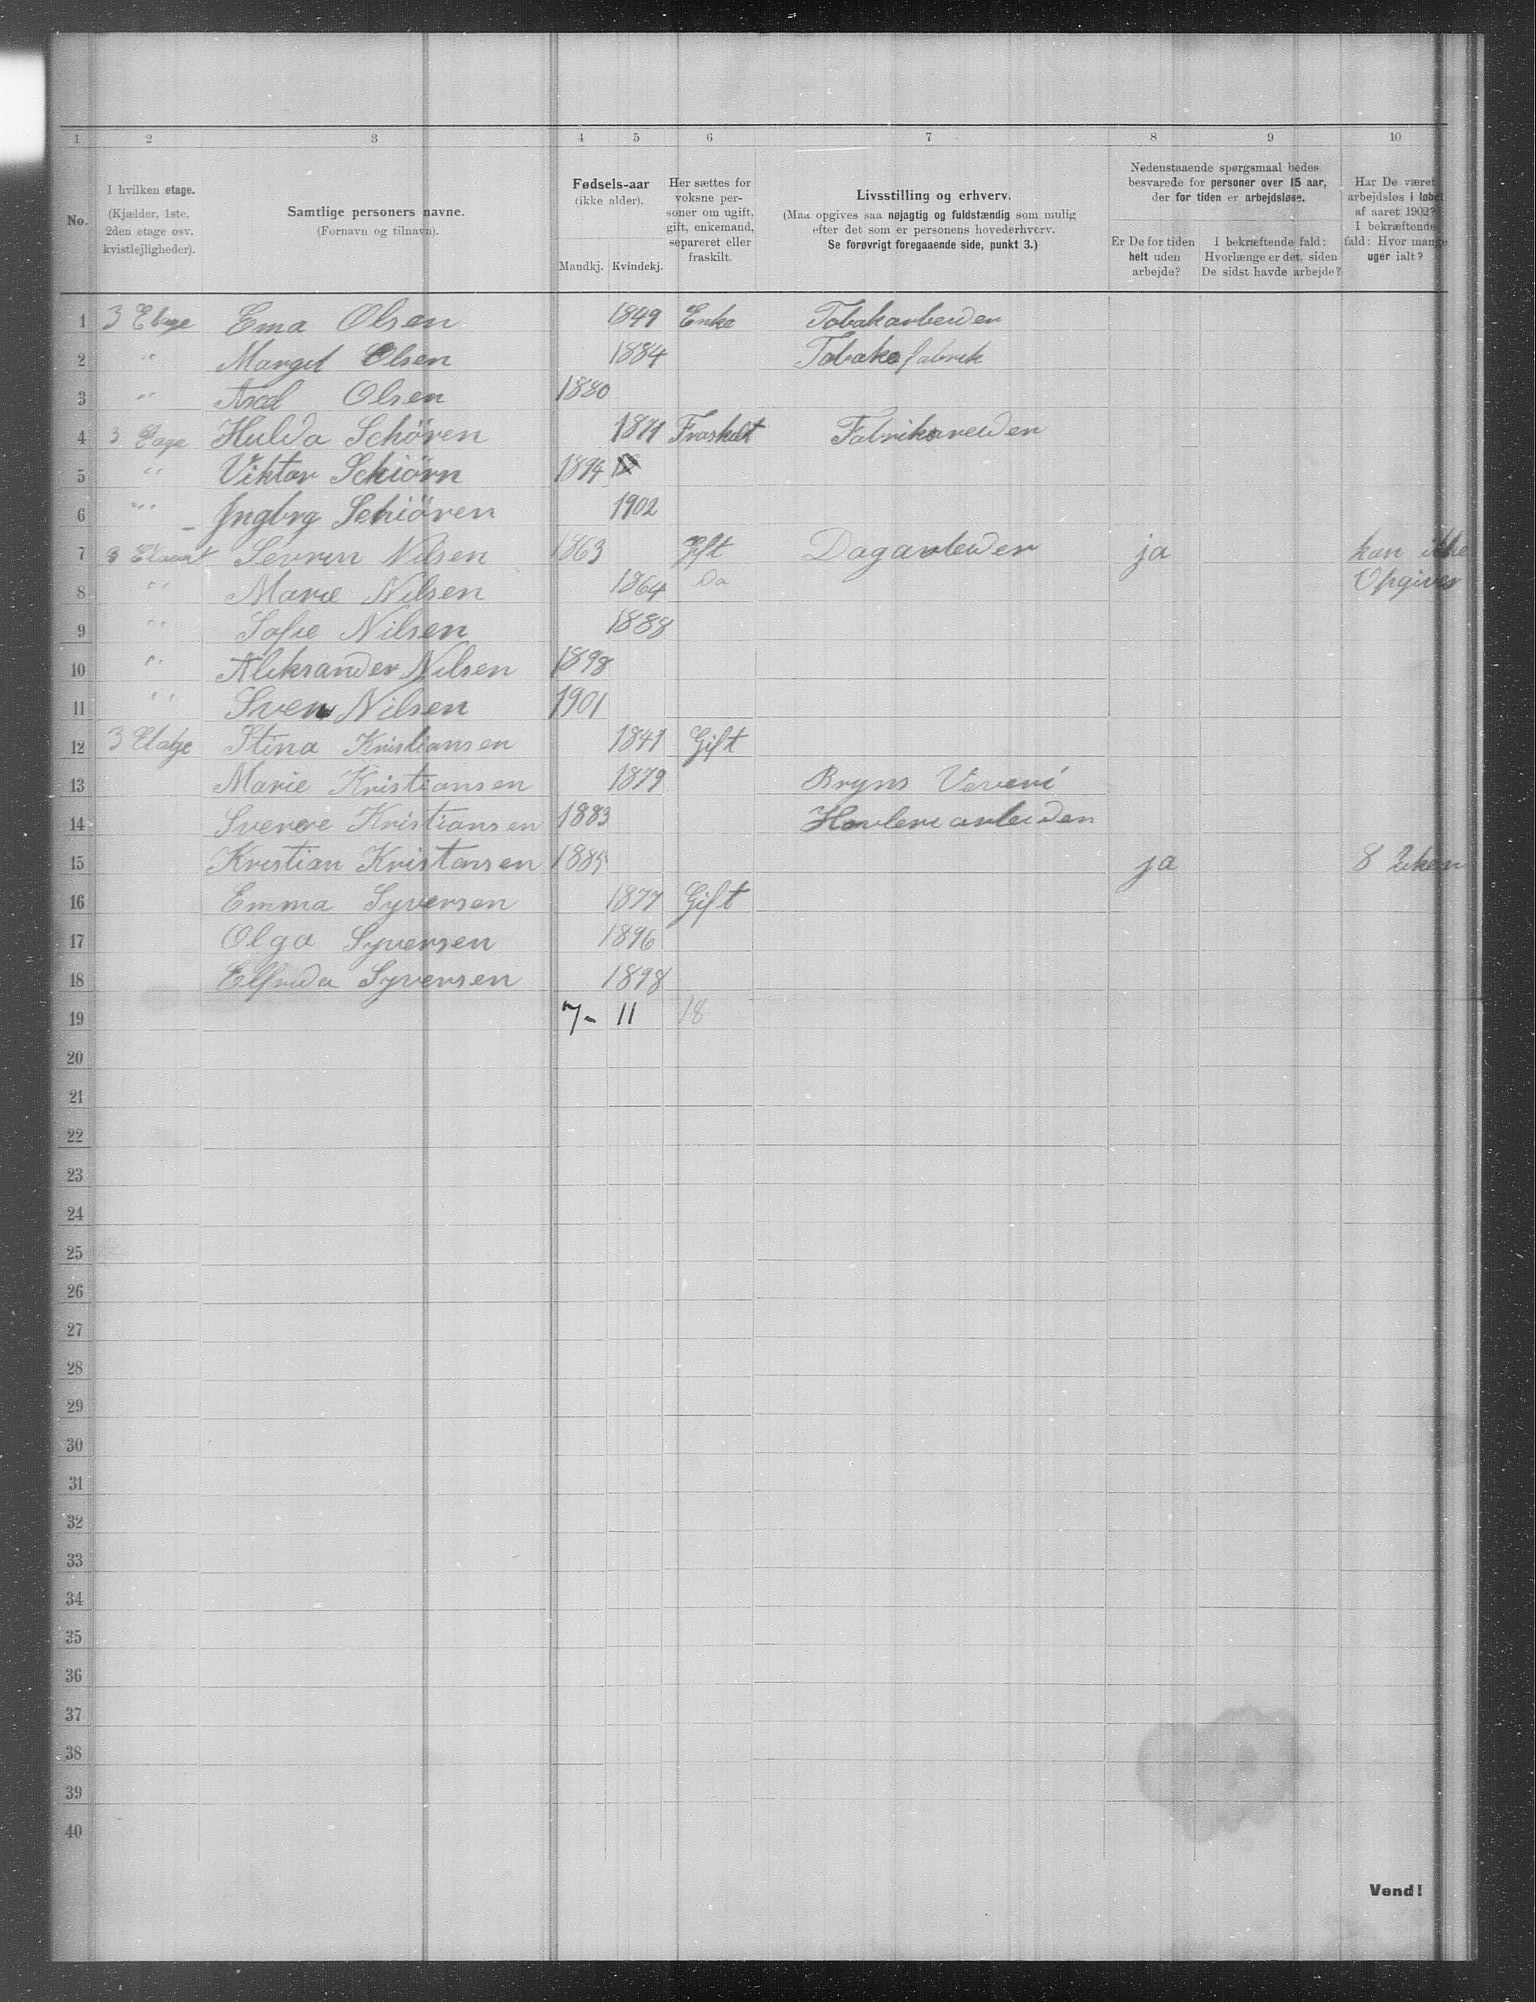 1 2 3 4 5 6 7 8 9 10
No.
I hvilken etage.
(Kjælder, 1ste.
2den etage osv.
kvistlejligheder).
Samtlige personers navne.
(Fornavn og tilnavn).
Fødsels-aar
(ikke alder).
Mandkj. Kvindekj.
Her sættes for
voksne per-
soner om ugift,
gift, enkemand,
separeret eller
fraskilt.
Livsstilling og erhverv.
(Maa opgives saa nøjagtig og fuldstændig som mulig
efter det som er personens hovederhverv.
Se forøvrigt foregaaende side, punkt 3.)
Nedenstaaende spørgsmaal bedes
besvarede for personer over 15 aar,
der for tiden er arbejdsløse.
Er De for tiden
helt uden
arbejde?
I bekræftende fald:
Hvorlænge er det, siden
De sidst havde arbejde?
Har De været
arbejdsløs i løbet
af aaret 1902?
I bekræftende
fald: Hvor mange
uger ialt?
1 3 Etage Ema Olsen 1849 Enke Tobakarbeider
2 " Margit Olsen 1884 Tobaksfabrik
3 " Axel Olsen 1880
4 3 Eage Hulda Schören Fraskelt Fabrikareider
5 " Viktor Schiörn 1894
6 " Ingbrg Schiören 1902
7 Sevrin Nilsen 1863 Gift Dagarbeider ja kan ikke
8 " Marie Nilsen 1864 Da Opgives
9 " Sofie Nilsen 1888
10 " Aleksander Nilsen 1898
11 " Sven Nilsen 1901
12 3 Etatge Stina Kristiansen 1841 Gift
13 Marie Kristiansen 1879 Bryns Veveri
14 Sverere Kristiansen 1883 Havleriarbeiden
15 Kristian Kristansen 1885 ja 8
16 Emma Syversen 1877 Gift
17 Olga Syversen 1896
18 Elfrida Syversen 1898
19 7- 11 18
20
21
22
23
24
25
26
27
28
29
30
31
32
33
34
35
36
37
38
39
40
Vend!